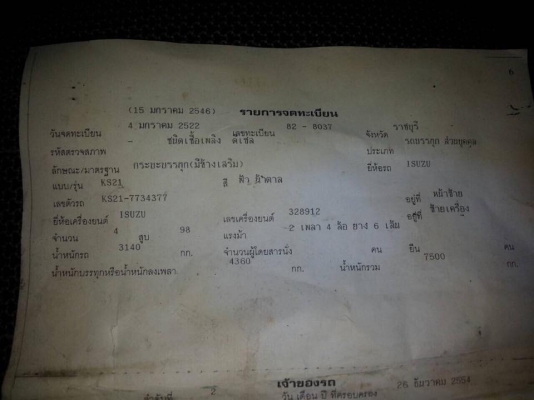 6
(15 มกราคม 2546) รายการจดทะเบียน
วันจดทะเบียน 4 มกราคม 2522 เลขทะเบียน 82 - 8037 จังหวัด ราชบุรี
รหัสตรวจสภาพ - ชนิดเชื้อเพลิง ดีเซล ประเภท รถบรรทุก ส่วนบุคคล
ลักษณะ/มาตรฐาน กระบะบรรทุก(มีข้างเสริม) ยี่ห้อรถ ISUZU
แบบ/รุ่น KS21 สี ฟ้า น้ำตาล
เลขตัวรถ KS21-7734377 อยู่ที่ หน้าซ้าย
ยี่ห้อเครื่องยนต์ ISUZU เลขเครื่องยนต์ 328912 อยู่ที่ ซ้ายเครื่อง
จำนวน 4 สูบ 98 แรงม้า 2 เพลา 4 ล้อ ยาง 6 เส้น
น้ำหนักรถ 3140 กก. จำนวนผู้โดยสารนั่ง คน ยืน คน
น้ำหนักบรรทุกหรือน้ำหนักลงเพลา 4360 กก. น้ำหนักรวม 7500 กก.
เจ้าของรถ
ลำดับที่ 2 วัน เดือน ปี ที่ครอบครอง 26 ธันวาคม 2554